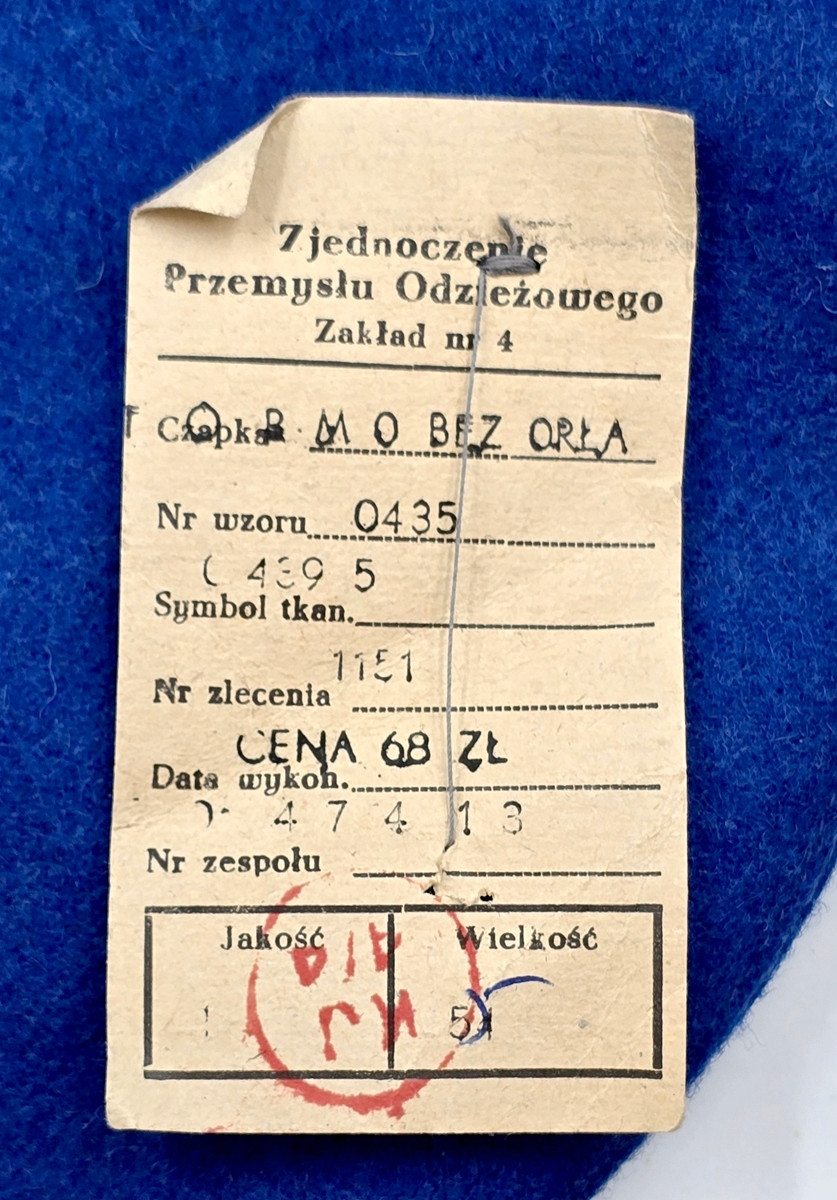 Zjednoczenie
Przemysłu Odzieżowego
Zakład nr 4
Czapka O R M O BEZ ORŁA
Nr wzoru 0435
4395
Symbol tkan.
1151
Nr zlecenia
CENA 68 ZŁ
Data wykon.
4 7 4 13
Nr zespołu
Jakość Wielkość
KJ